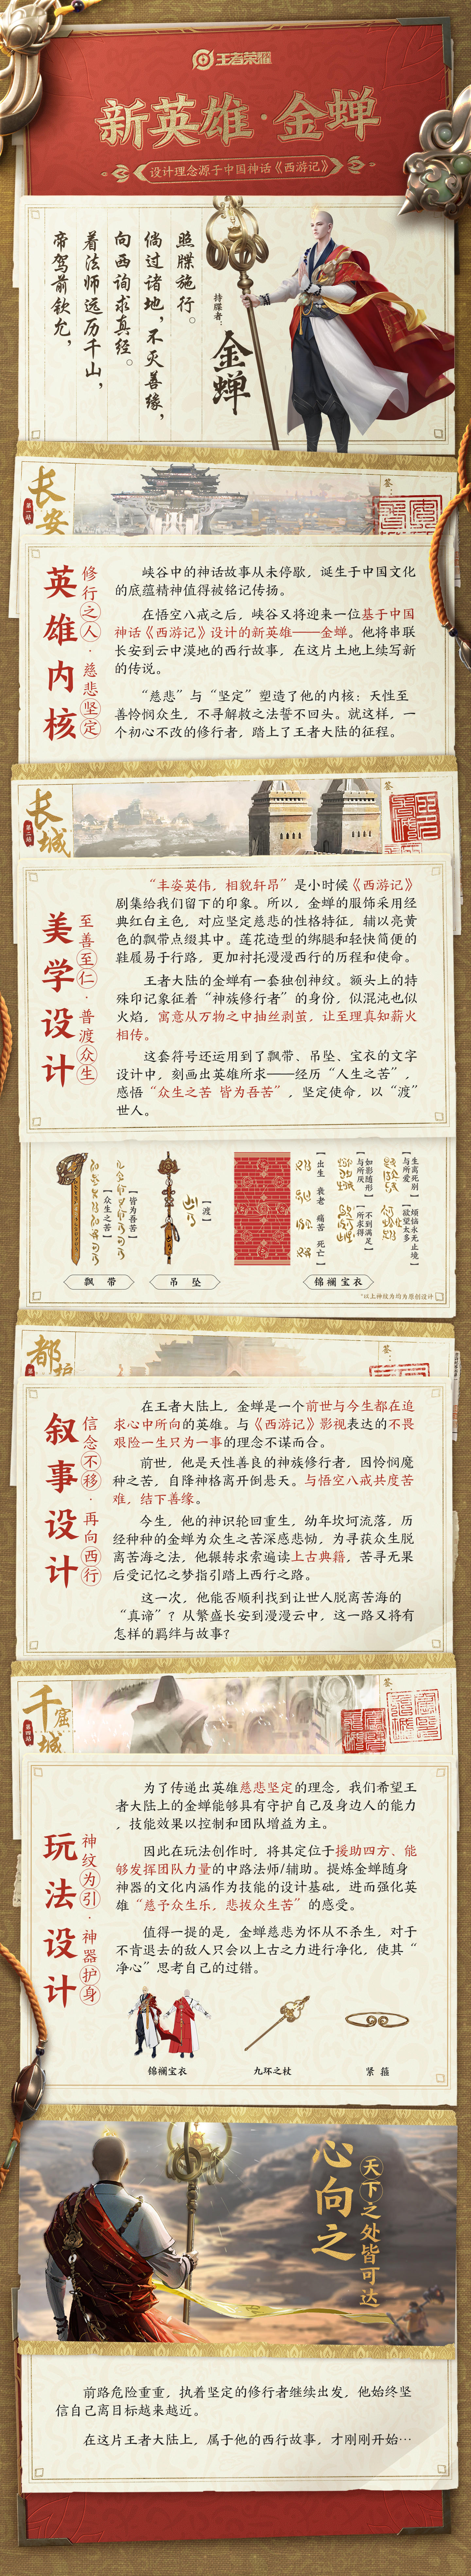 王者荣耀
新英雄·金蝉
设计理念源于中国神话《西游记》
照牒施行。
倘过诸地，不灭善缘，
向西询求真经。
着法师远历千山，
帝驾前钦允，
持牒者：
金蝉
长安
第一站
签：
英雄内核
修行之人·慈悲坚定
峡谷中的神话故事从未停歇，诞生于中国文化
的底蕴精神值得被铭记传扬。
在悟空八戒之后，峡谷又将迎来一位基于中国
神话《西游记》设计的新英雄——金蝉。他将串联
长安到云中漠地的西行故事，在这片土地上续写新
的传说。
“慈悲”与“坚定”塑造了他的内核：天性至
善怜悯众生，不寻解救之法誓不回头。就这样，一
个初心不改的修行者，踏上了王者大陆的征程。
长城
第二站
签：
美学设计
至善至仁·普渡众生
“丰姿英伟，相貌轩昂”是小时候《西游记》
剧集给我们留下的印象。所以，金蝉的服饰采用经
典红白主色，对应坚定慈悲的性格特征，辅以亮黄
色的飘带点缀其中。莲花造型的绑腿和轻快简便的
鞋履易于行路，更加衬托漫漫西行的历程和使命。
王者大陆的金蝉有一套独创神纹。额头上的特
殊印记象征着“神族修行者”的身份，似混沌也似
火焰，寓意从万物之中抽丝剥茧，让至理真知薪火
相传。
这套符号还运用到了飘带、吊坠、宝衣的文字
设计中，刻画出英雄所求——经历“人生之苦”，
感悟“众生之苦 皆为吾苦”，坚定使命，以“渡”
世人。
【皆为吾苦】
【众生之苦】
【渡】
【出生 衰老 痛苦 死亡】
【如影随形 与所厌】
【不到满足 所求得】
【生离死别 与所爱】
【烦恼永无止境 欲望太多】
飘带
吊坠
锦襕宝衣
*以上神纹为均为原创设计
都护
签：
叙事设计
信念不移·再向西行
在王者大陆上，金蝉是一个前世与今生都在追
求心中所向的英雄。与《西游记》影视表达的不畏
艰险一生只为一事的理念不谋而合。
前世，他是天性善良的神族修行者，因怜悯魔
种之苦，自降神格离开倒悬天。与悟空八戒共度苦
难，结下善缘。
今生，他的神识轮回重生，幼年坎坷流落，历
经种种的金蝉为众生之苦深感悲恸，为寻获众生脱
离苦海之法，他辗转求索遍读上古典籍，苦寻无果
后受记忆之梦指引踏上西行之路。
这一次，他能否顺利找到让世人脱离苦海的
“真谛”？从繁盛长安到漫漫云中，这一路又将有
怎样的羁绊与故事？
千窟城
第四站
签：
玩法设计
神纹为引·神器护身
为了传递出英雄慈悲坚定的理念，我们希望王
者大陆上的金蝉能够具有守护自己及身边人的能力
，技能效果以控制和团队增益为主。
因此在玩法创作时，将其定位于援助四方、能
够发挥团队力量的中路法师/辅助。提炼金蝉随身
神器的文化内涵作为技能的设计基础，进而强化英
雄“慈予众生乐，悲拔众生苦”的感受。
值得一提的是，金蝉慈悲为怀从不杀生，对于
不肯退去的敌人只会以上古之力进行净化，使其“
净心”思考自己的过错。
锦襕宝衣
九环之杖
紧箍
心向之
天下之处皆可达
前路危险重重，执着坚定的修行者继续出发，他始终坚
信自己离目标越来越近。
在这片王者大陆上，属于他的西行故事，才刚刚开始…